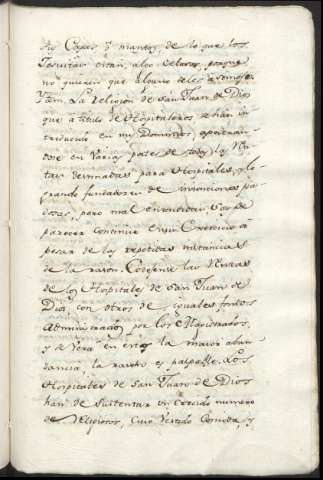 Ay Capas, y mantos, de lo que los
Jesuitas están, algo celosos, porque
no quieren que alguno se les asemeje.
Ytem. La religion de San Juan de Dios
que a titulo de Ospitaleros se han in
troducido en mis Dominios, apoderan
dose en varias partes de todas las Ren
tas destinadas para Hospitales, y lo
grando fundadores de intenciones pia
dosas, pero mal entendidas, soy de
parecer continue en su Exercicio a
pesar de las repetidas instancias
de la razon. Cotejense las Rentas
de los Hospitales de San Juan de
Dios con otros de iguales fondos
Administrados por los Magistrados,
y se verá en estos la maior abun
dancia, la razon es palpable. Los
Hospitales de San Juan de Dios
han de sustentar un Crecido numero
de Religiosos, Cuio Vestido Comida, y